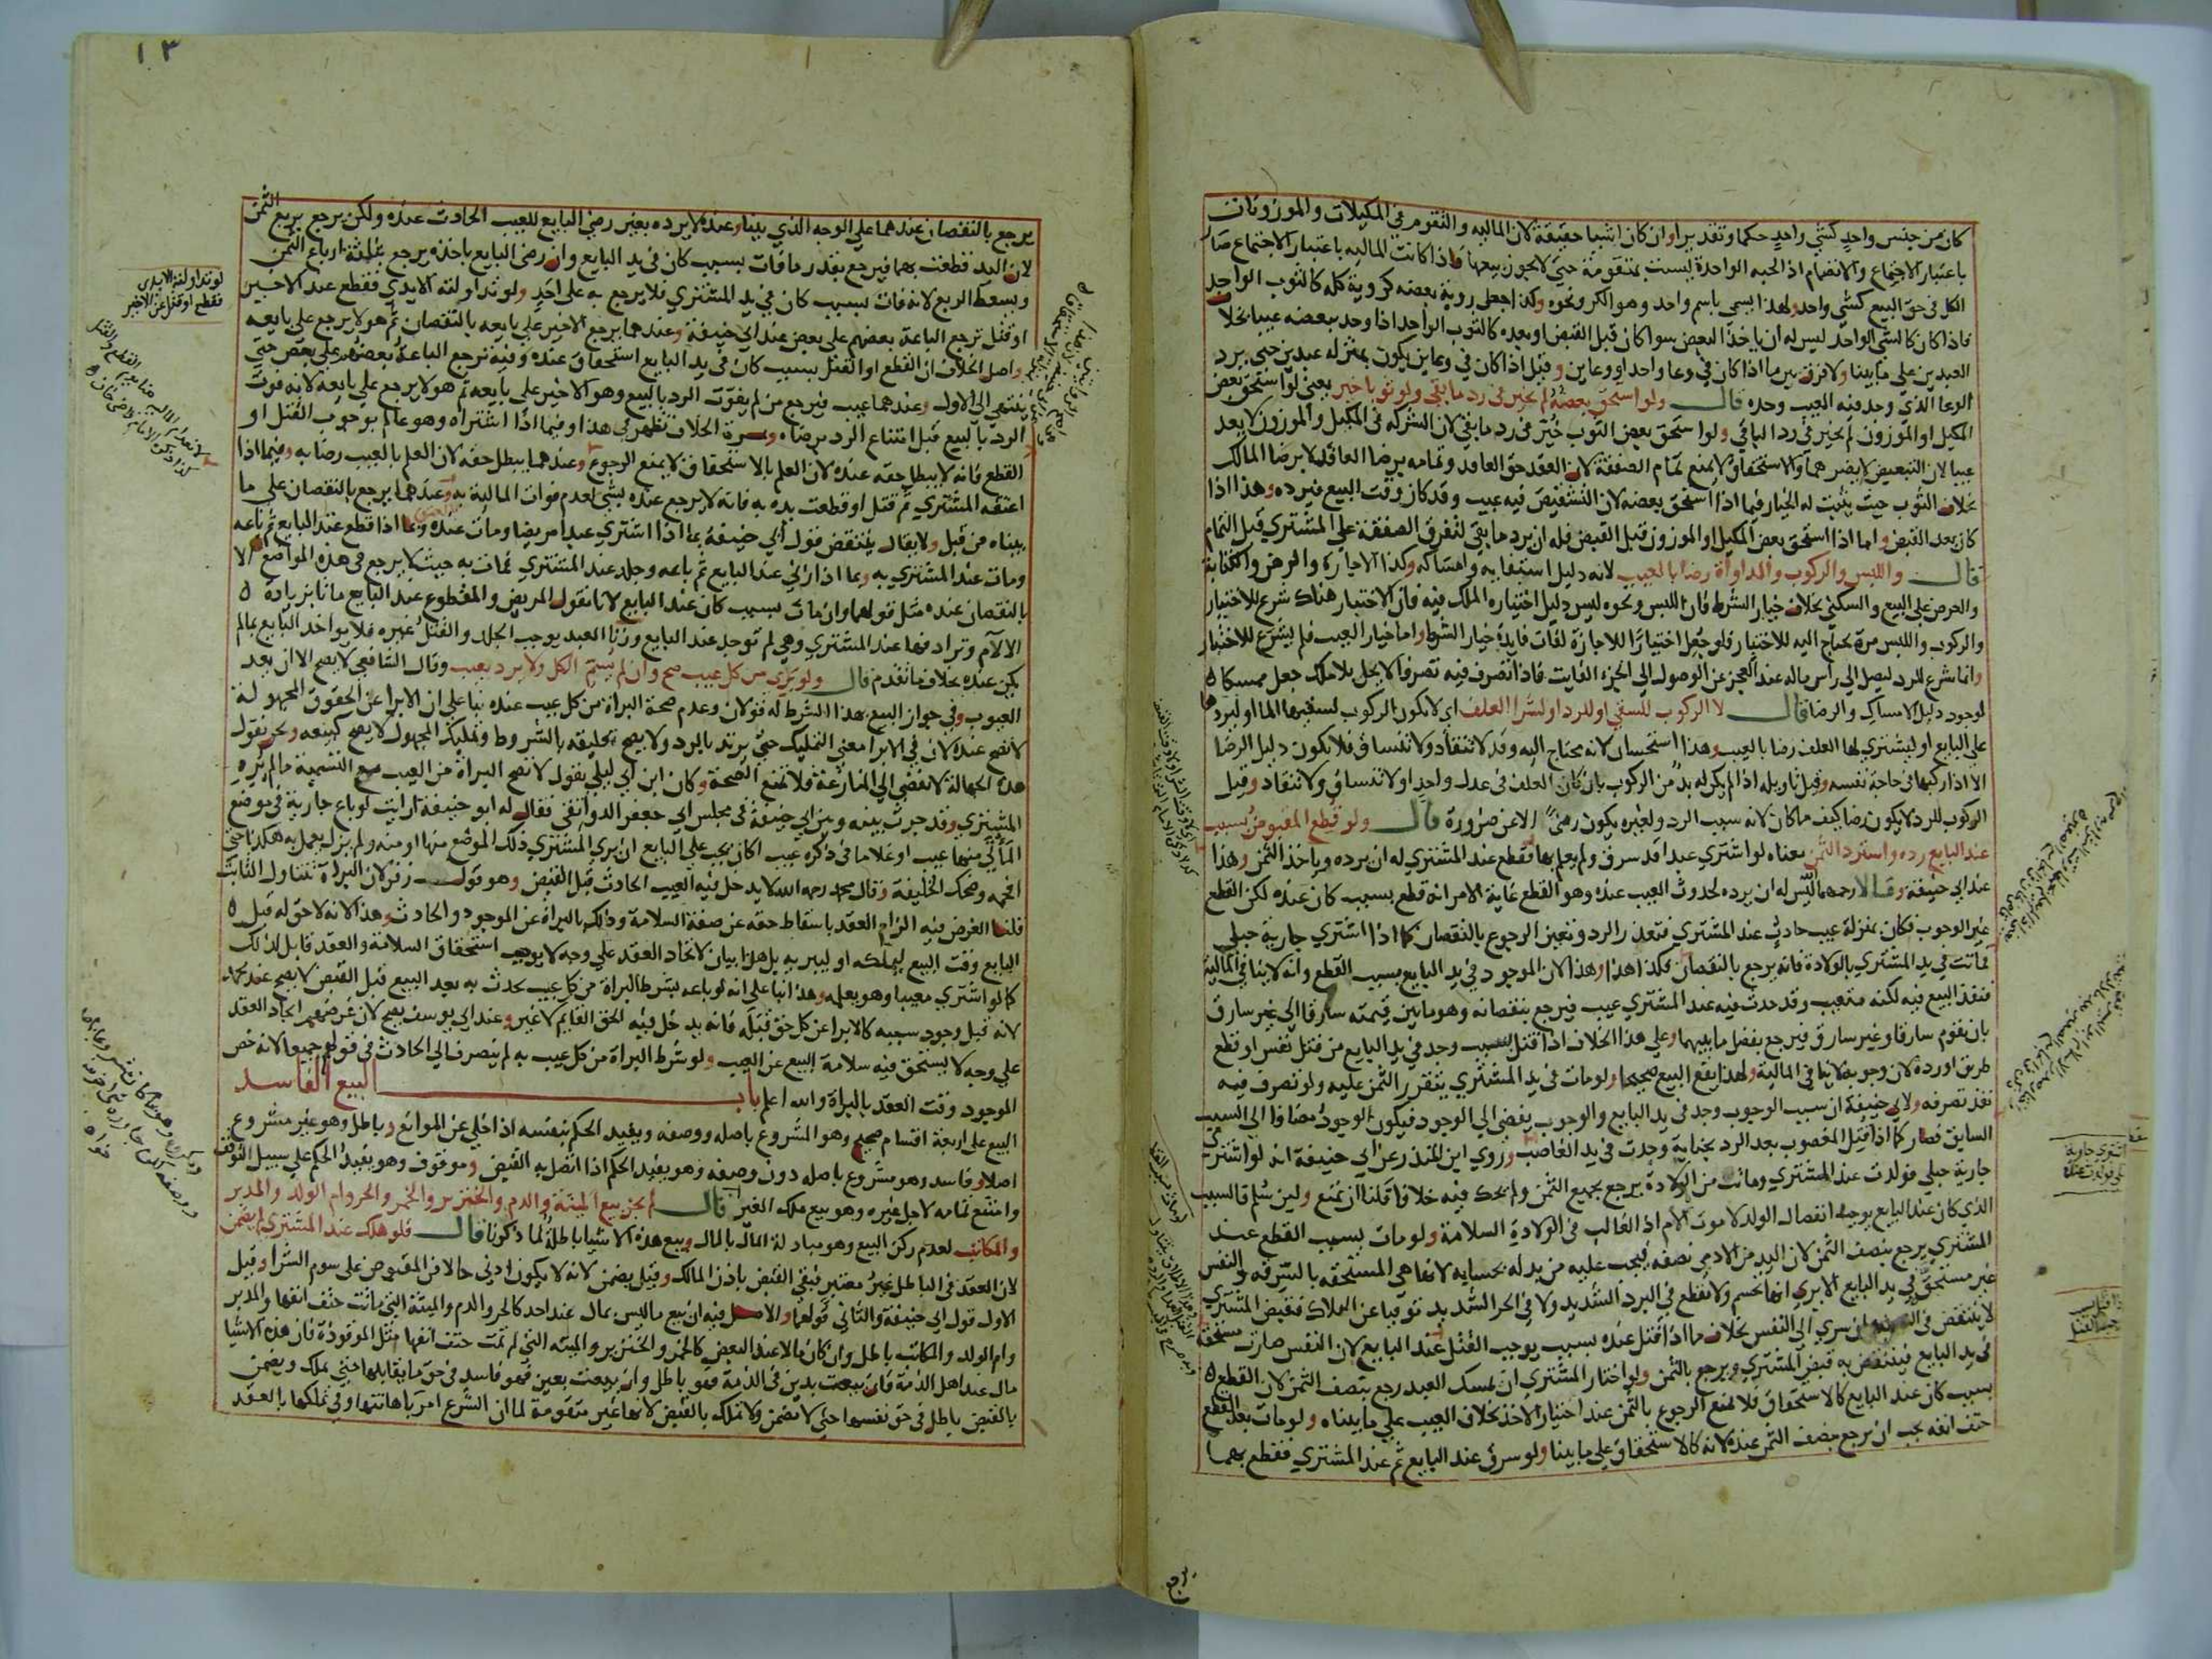 كان من جنس واحد كشي واحد حكما وتقديرا وان كان اشيا حقيقة لان المالية والتقوم في المكيلات والموزونات
باعتبار الاجتماع والانضمام اذ الحبة الواحدة ليست بمتقومة حتي لا يجوز بيعها فاذا كانت المالية باعتبار الاجتماع صار
الكل في حق البيع كشي واحد ولهذا يسمي باسم واحد وهو الكر ونحوه وكذا جعل روية بعضه كروية كله كالثوب الواحد
فاذا كان كالشي الواحد ليس له ان ياخذ البعض سوا كان قبل القبض او بعده كالثوب الواحد اذا وجد ببعضه عيبا بخلاف
العبدين علي ما بينا ولا فرق بين ما اذا كان في وعا واحد او وعاين وقيل اذا كان في وعاين يكون بمنزلة عبدين حتي يرد
الوعا الذي وجد فيه العيب وحده قال ولو استحق بعضه لم يخير في رد ما بقي ولو ثوبا خير يعني لو استحق بعض
المكيل او الموزون لم يخير في رد الباقي ولو استحق بعض الثوب خير في رد ما بقي لان الشركة في المكيل والموزون لا يعد
عيبا لان التبعيض لا يضرهما والاستحقاق لا يمنع تمام الصفقة لان العقد حق العاقد وتمامه برضا العاقد لا برضا المالك
بخلاف الثوب حيث يثبت له الخيار فيما اذا استحق بعضه لان التشقيص فيه عيب وقد كان وقت البيع فيرده وهذا اذا
كان بعد القبض واما اذا استحق بعض المكيل او الموزون قبل القبض فله ان يرد ما بقي لتفرق الصفقة علي المشتري قبل التمام
قال واللبس والركوب والمداواة رضا بالعيب لانه دليل استبقايه وامساكه وكذا الاجارة والرهن والكتابة
والعرض علي البيع والسكني بخلاف خيار الشرط فان اللبس ونحوه ليس دليل اختياره الملك فيه فان الاختبار هناك شرع للاختيار
والركوب واللبس مرة يحتاج اليه للاختبار فلو جعل اختيارا للاجازة لفات فايدة خيار الشرط واما خيار العيب فلم يشرع للاختبار
وانما شرع للرد ليصل الي راس ماله عند العجز عن الوصول الي الجزء الفايت فاذا تصرف فيه تصرفا لا يحل بلا ملك جعل ممسكا
لوجود دليل الامساك والرضا قال لا الركوب للسقي او للرد او لشرا العلف اي لا يكون الركوب ليسقيها الما او ليردها
علي البايع او ليشتري لها العلف رضا بالعيب وهذا استحسان لانه محتاج اليه وقد لا تنقاد ولا تنساق فلا يكون دليل الرضا
الا اذا ركبها في حاجة نفسه وقيل تاويله اذا لم يكن له بد من الركوب بان كان العلف في عدل واحد او لا تنساق ولا تنقاد وقيل
الركوب للرد لا يكون رضا كيف ما كان لانه سبب الرد ولغيره يكون رضي الا عن ضرورة قال ولو قطع المقبوض بسبب
عند البايع رده واسترد الثمن معناه لو اشتري عبدا قد سرق ولم يعلم بها فقطع عند المشتري له ان يرده وياخذ الثمن وهذا
عند ابي حنيفة وقالا رحمهما الله ليس له ان يرده لحدوث العيب عنده وهو القطع غاية الامر انه قطع بسبب كان عنده لكن القطع
غير الوجوب فكان بمنزلة عيب حادث عند المشتري فتعذر الرد وتعين الرجوع بالنقصان كما اذا اشتري جارية حبلي
فماتت في يد المشتري بالولادة فانه يرجع بالنقصان فكذا هذا وهذا لان الموجود في يد البايع سبب القطع وانه لا ينافي المالية
فنفذ البيع فيه لكنه متعيب وقد حدث فيه عند المشتري عيب فيرجع بنقصانه وهو ما بين قيمته سارقا الي غير سارق
بان يقوم سارقا وغير سارق فيرجع بفضل ما بينهما وعلي هذا الخلاف اذا قتل بسبب وجد في يد البايع من قتل نفس او قطع
طريق او ردة لان وجوبه لا ينافي المالية ولهذا يقع البيع صحيحا ولو مات في يد المشتري يتقرر الثمن عليه ولو تصرف فيه
نفذ تصرفه ولابي حنيفة ان سبب الوجوب وجد في يد البايع والوجوب يفضي الي الوجود فيكون الوجود مضافا الي السبب
السابق فصار كما اذا قتل المغصوب بعد الرد بجناية وجدت في يد الغاصب وروي ابن المنذر عن ابي حنيفة انه لو اشتري
جارية حبلي فولدت عند المشتري وماتت من الولادة يرجع بجميع الثمن ولم يحك فيه خلافا قلنا ان نمنع ولين سلم فالسبب
الذي كان عند البايع يوجب انفصال الولد لا موت الام اذ الغالب في الولادة السلامة ولو مات بسبب القطع عند
المشتري يرجع بنصف الثمن لان اليد من الادمي نصفه فيجب عليه من بدله بحسابه لانها هي المستحقه بالسرقه والنفس
غير مستحق في يد البايع الا بري انها تحسم ولا تقطع في البرد الشديد ولا في الحر الشديد توقيا عن الهلاك فقبض المشتري
لا ينتقض في سري الي النفس بخلاف ما اذا قتل عنده بسبب يوجب القتل عند البايع لان النفس صارت مستحقة
في يد البايع فينتقض به قبض المشتري ويرجع بالثمن ولو اختار المشتري ان يمسك العبد رجع بنصف الثمن لان القطع
بسبب كان عند البايع كالاستحقاق فلا يمنع الرجوع بالثمن عند اختيار الاخذ بخلاف العيب علي ما بيناه ولو مات بعد القطع
حتف انفه يجب ان يرجع بنصف الثمن عنده لانه كالاستحقاق علي ما بينا ولو سرق عند البايع ثم عند المشتري فقطع بهما
يرجع
اشتري جارية
١٣
يرجع بالنقصان عندهما علي الوجه الذي بينا وعنده لا يرده بغير رضي البايع للعيب الحادث عنده ولكن يرجع بربع الثمن
لان اليد قطعت بهما فيرجع بقدر ما فات بسبب كان في يد البايع وان رضي البايع باخذه يرجع بثلثة ارباع الثمن
ويسقط الربع لانه فات بسبب كان في يد المشتري فلا يرجع به علي احد ولو تداولته الايدي فقطع عند الاخير
او قتل ترجع الباعة بعضهم علي بعض عند ابي حنيفة وعندهما يرجع الاخير علي بايعه بالنقصان ثم هو لا يرجع علي بايعه
واصل الخلاف ان القطع او القتل بسبب كان في يد البايع استحقاق عنده وفيه ترجع الباعة بعضهم علي بعض حتي
ينتهي الي الاول وعندهما عيب فيرجع من لم يفوت الرد بالبيع وهو الاخير علي بايعه ثم هو لا يرجع علي بايعه لانه فوت
الرد بالبيع قبل امتناع الرد برضاه وثمرة الخلاف تظهر في هذا وفيما اذا اشتراه وهو عالم بوجوب القتل او
القطع فانه لا يبطل حقه عنده لان العلم بالاستحقاق لا يمنع الرجوع وعندهما يبطل حقه لان العلم بالعيب رضا به وفيما اذا
اعتقه المشتري ثم قتل او قطعت يده به فانه لا يرجع عنده بشي لعدم فوات المالية به وعندهما يرجع بالنقصان علي ما
بيناه من قبل ولا يقال ينتقض قول ابي حنيفة بما اذا اشتري عبدا مريضا ومات عنده وبما اذا قطع عند البايع ثم باعه
ومات عند المشتري به وبما اذا زني عند البايع ثم باعه وجلد عند المشتري فمات به حيث لا يرجع في هذه المواضع الا
بالنقصان عنده مثل قولهما وان مات بسبب كان عند البايع لانا نقول المريض والمقطوع عند البايع ماتا بزيادة
الالام وترادفها عند المشتري وهي لم توجد عند البايع وزنا العبد يوجب الجلد والقتل غيره فلا يواخذ البايع بما لم
يكن عنده بخلاف ما تقدم قال ولو بري من كل عيب صح وان لم يسم الكل ولا يرد بعيب وقال الشافعي لا يصح الا ان يعد
العيوب وفي جواز البيع بهذا الشرط له قولان وعدم صحة البراة من كل عيب عنده بنا علي ان الابرا عن الحقوق المجهولة
لا تصح عنده لان في الابرا معني التمليك حتي يرتد بالرد ولا يصح تعليقه بالشروط وتمليك المجهول لا يصح كبيعه ونحن نقول
هذه الجهالة لا تفضي الي المنازعة فلا تمنع الصحة وكان ابن ابي ليلي يقول لا تصح البراة من العيب مع التسمية ما لم يره
المشتري وقد جرت بينه وبين ابي حنيفة في مجلس ابي جعفر الدوانقي فقال له ابو حنيفة ارايت لو باع جارية في موضع
الماتي منها عيب او غلاما في ذكره عيب اكان يجب علي البايع ان يري المشتري ذلك الموضع منها او منه ولم يزل يعمل به هكذا حتي
افحمه وضحك الخليفة وقال محمد رحمه الله لا يدخل فيه العيب الحادث قبل القبض وهو قول زفر لان البراة تتناول الثابت
قلنا الغرض فيه الزام العقد باسقاط حقه عن صفة السلامة وذلك بالبراة عن الموجود والحادث وهذا لانه لا حق له قبل
البايع وقت البيع ليملكه او ليبريه بل هذا بيان لاتحاد العقد علي وجه لا يوجب استحقاق السلامة والعقد قابل لذلك
كما لو اشتري معيبا وهو يعلمه وهذا بنا علي انه لو باعه بشرط البراة من كل عيب يحدث به بعد البيع قبل القبض لا يصح عند محمد
لانه قبل وجود سببه كالابرا عن كل حق قبله فانه يدخل فيه الحق القايم لا غير وعند ابي يوسف يصح لان غرضهم ايجاد العقد
علي وجه لا يستحق فيه سلامة المبيع عن العيب ولو شرط البراة من كل عيب به لم ينصرف الي الحادث في قولهم جميعا لانه خص
الموجود وقت العقد بالبراة والله اعلم باب البيع الفاسد
البيع علي اربعة اقسام صحيح وهو المشروع باصله ووصفه ويفيد الحكم بنفسه اذا خلي عن الموانع وباطل وهو غير مشروع
اصلا وفاسد وهو مشروع باصله دون وصفه وهو يفيد الحكم اذا اتصل به القبض وموقوف وهو يفيد الحكم علي سبيل التوقف
وامتنع تمامه لاجل غيره وهو بيع ملك الغير قال لم يجز بيع الميتة والدم والخنزير والخمر والحر وام الولد والمدبر
والمكاتب لعدم ركن البيع وهو مبادلة المال بالمال وبيع هذه الاشيا باطل لما ذكرنا قال فلو هلك عند المشتري لم يضمن
لان العقد في الباطل غير معتبر فبقي القبض باذن المالك وقيل يضمن لانه لا يكون ادني حالا من المقبوض علي سوم الشرا وقيل
الاول قول ابي حنيفة والثاني قولهما والاصل فيه ان بيع ما ليس بمال عند احد كالحر والدم والميتة التي ماتت حتف انفها والمدبر
وام الولد والمكاتب باطل وان كان مالا عند البعض كالخمر والخنزير والميته التي لم تمت حتف انفها مثل الموقوذة فان هذه الاشيا
مال عند اهل الذمة فان بيعت بدين في الذمة فهو باطل وان بيعت بعين فهو فاسد في حق ما يقابلها حتي يملك ويضمن
بالقبض باطل في حق نفسها حتي لا تضمن ولا تملك بالقبض لانها غير متقومة لما ان الشرع امر باهانتها وفي تملكها بالعقد
لو تداولته الايدي
فقطع او قتل عند الاخير